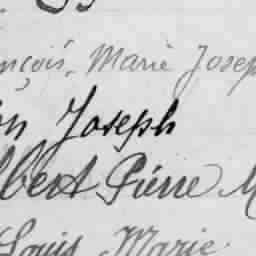 nçois, Marie Joseph
on Joseph
lbert Pierre M
Louis Marie